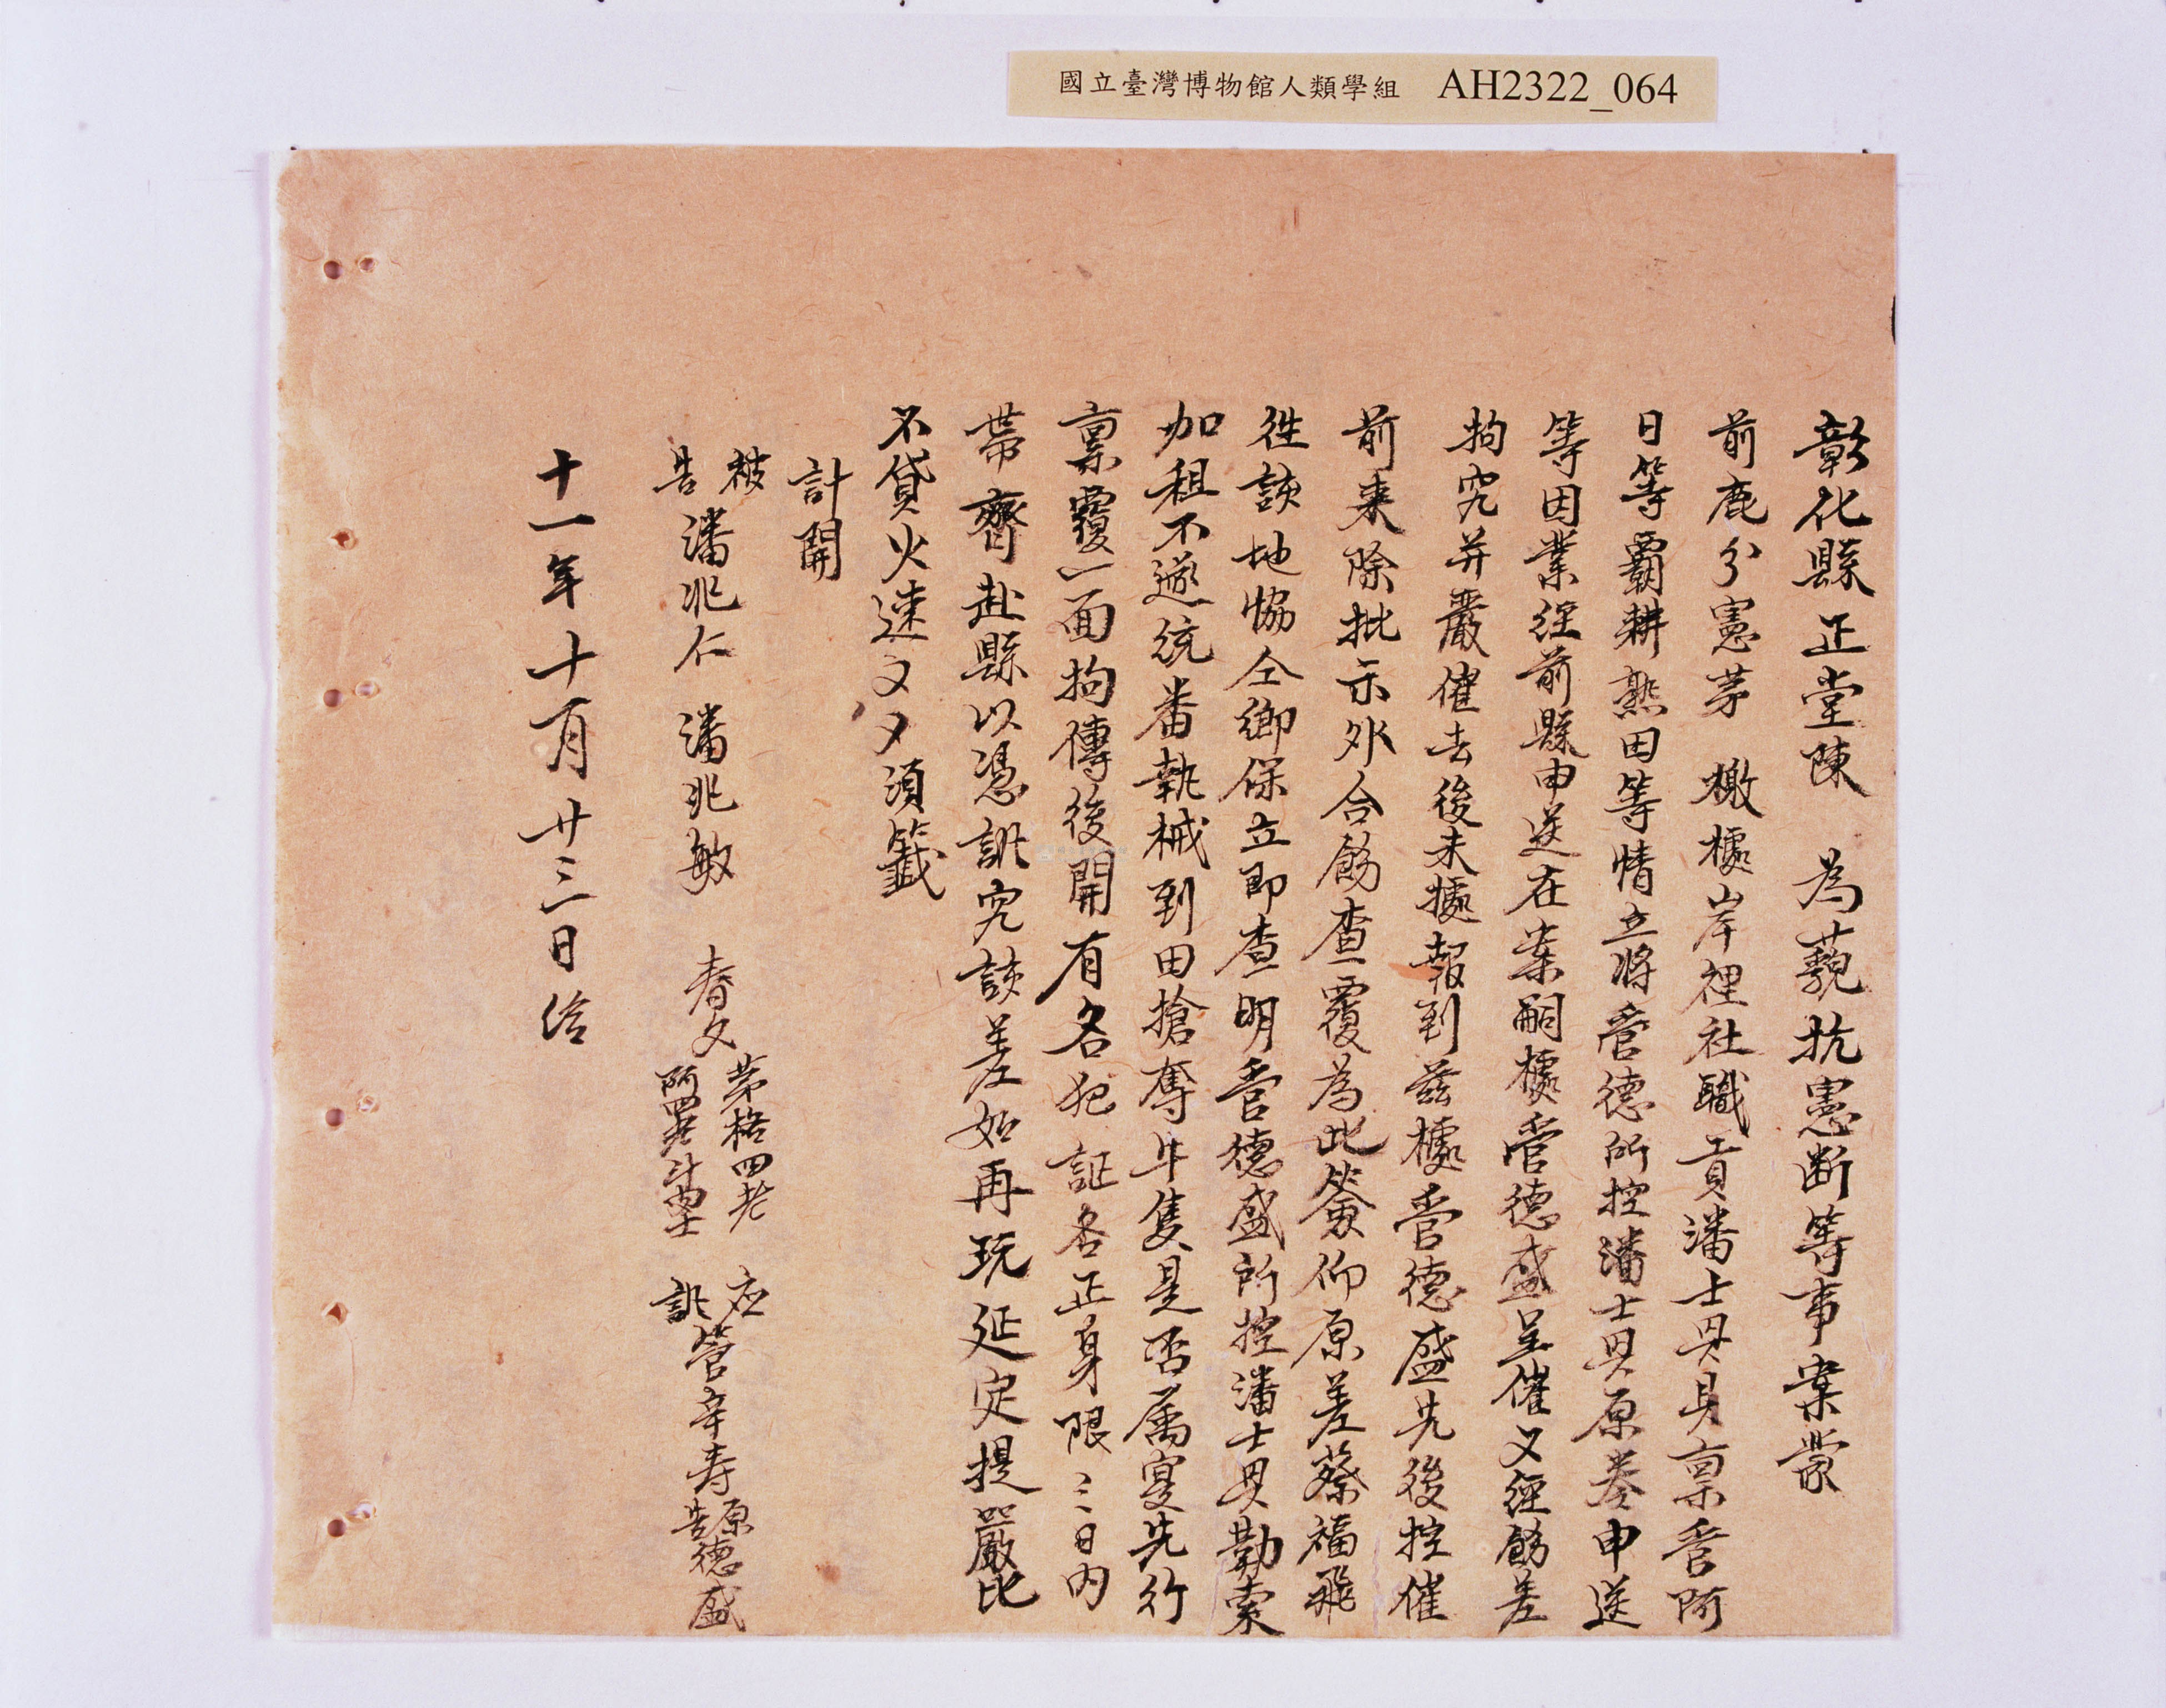 國立臺灣博物館人類學組 AH2322_064
彰化縣正堂陳 為藐抗憲断等事案蒙
前鹿分憲茅 檄據岸裡社職貢潘士興具禀管阿
日等霸耕熟田等情立將管德所控潘士興原卷申送
等因業經前縣申送在案嗣據管德盛呈催又經飭差
拘究并嚴催去後未據報到茲據管德盛先後控催
前来除批示外合飭查覆為此簽仰原差蔡福飛
徃該地協仝鄉保立即查明管德盛所控潘士興勒索
加租不遂統番執械到田搶奪牛隻是否属寔先行
禀覆一面拘傳後開有名犯証各正身限三日內
帶齊赴縣以憑訊究該差如再玩延定提嚴比
不貸火速又夕湏籤
計開
被告潘兆仁 潘兆敏 春文 茅格四老 阿四老 应訊管辛寿 原告德盛
十一年十月廿三日给